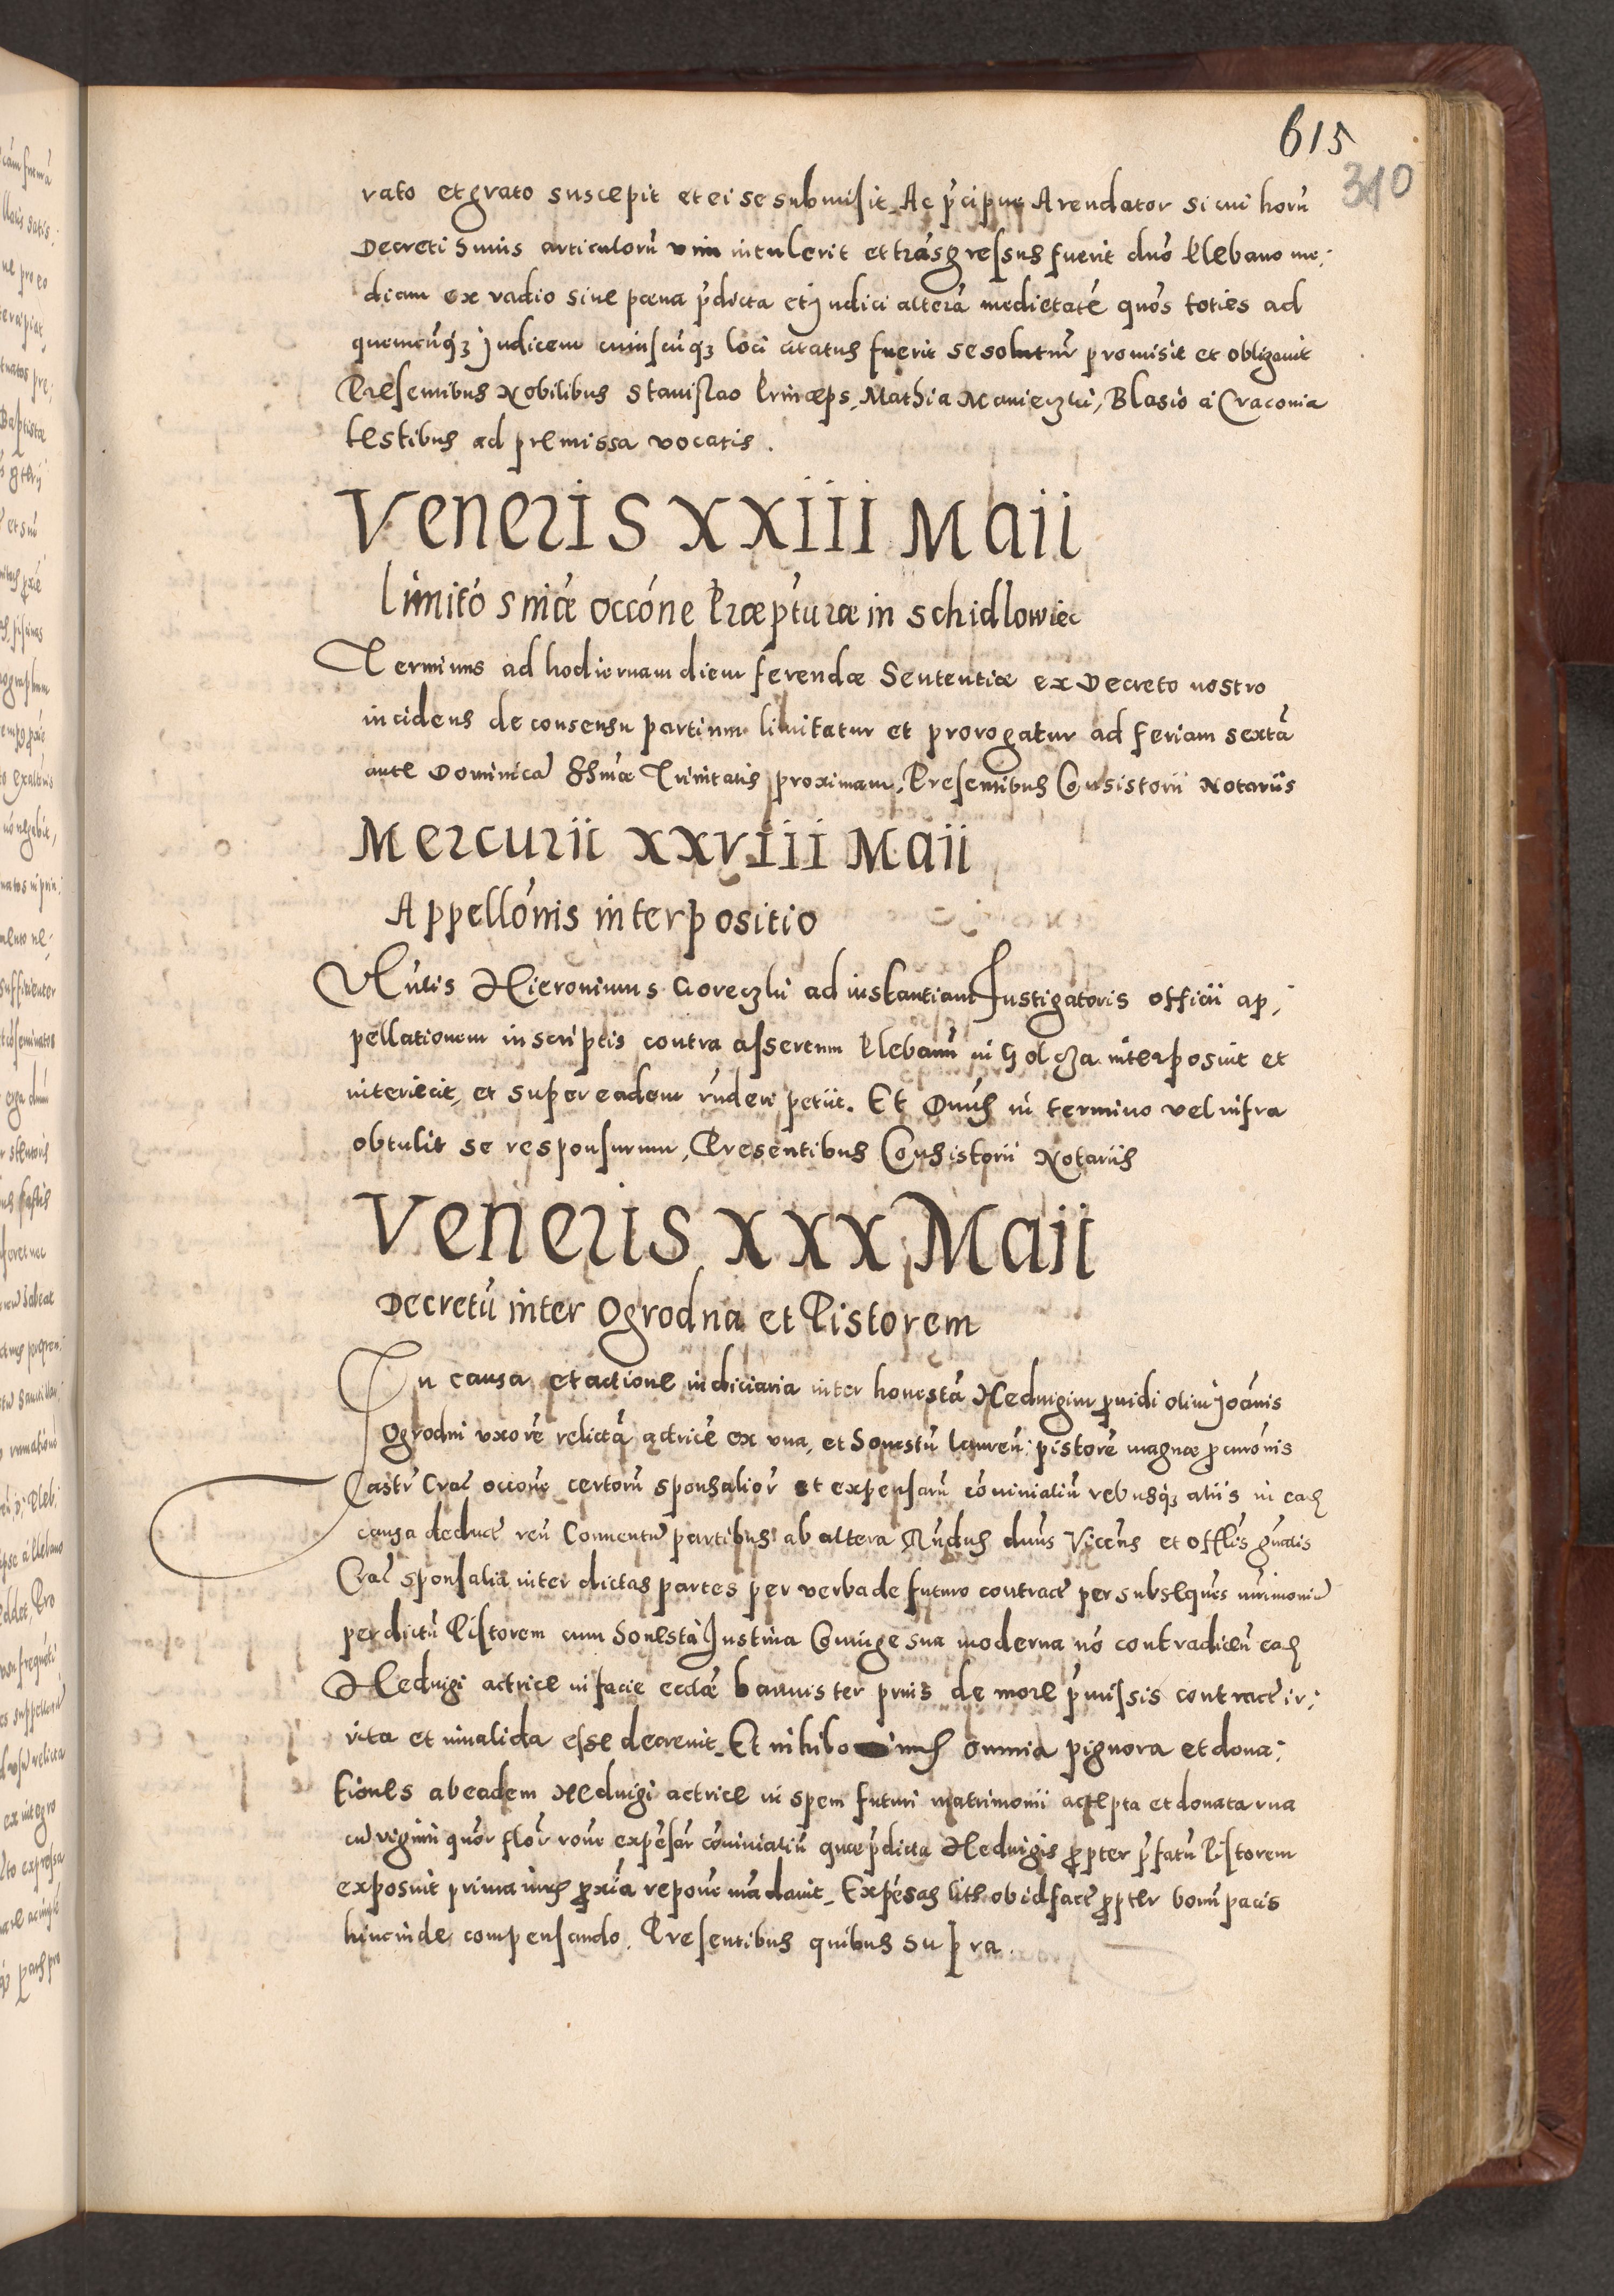 615
310
rato et grato suscepit et ei se submisit. Ac p̃cipue Arendator si cui horũ
Decreti huius articulorũ vim intulerit et trãsgressus fuerit dnõ Plebano me:
diam ex vadio siue pœna p̃dicta et Judici alterã medietatẽ quõs toties ad
quemcũqꝫ Judicem cuiuscũqꝫ loci citatus fuerit se solutur̃ promisit et obligauit
Presentibus Nobilibus Stanislao Princeps, Mathia Manieczki, Blasio a Cracouia
testibus ad premissa vocatis.
Veneris XXIII Maii
Limitõ sniæ occõne Præpturæ in Schidlowiec
Terminus ad hodiernam diem ferendæ Sententiæ ex Decreto nostro
incidens de consensu partium limitatur et prorogatur ad feriam sextã
ante Dominicã Smæ Trinitatis proximam, Presentibus Consistorii Notariis
Mercurii XXVIII Maii
Appellõnis interpositio
Nobilis Hieronimus Goreczki ad instantiam Instigatoris officii ap:
pellationem in scriptis contra assertum Plebanũ in Golcza interposuit et
interiecit, et super eadem rñderi petiit. Et Dnus in termino vel infra
obtulit se responsurum, Presentibus Consistorii Notariis
Veneris XXX Maii
Decretũ inter Ogrodna et Pistorem
In causa et actione iudiciaria inter honestã Heduigim prouidi olim Joãnis
Ogrodni vxorẽ relictã actricẽ ex vna, et honestũ Laureñ: pistorẽ magnæ procurõnis
Castri Crac̃ occone certorũ sponsalior̃ et expensarũ cõuiuialiũ rebusqꝫ aliis in eadẽ
causa deduct̃ reũ Conuentũ partibus ab altera Rñdus dnus Vicẽns et offlis gñalis
Crac̃ sponsalia inter dictas partes per verba de futuro contract̃ per subseqũes mr̃imoniũ
per dictũ Pistorem cum honesta Justina Coniuge sua moderna nõ contradicẽn eadẽ
Heduigi actrice in facie ecclæ bannis ter prius de more p̃missis contract̃ ir:
rita et inualida esse decreuit. Et nihilo minus omnia pignora et dona:
tiones ab eadem Heduigi actrice in spem futuri matrimonii accepta et donata vna
cũ viginti quor flor̃ rõne expẽsar̃ cõuiuialiũ quæ p̃dicta Heduigis propter p̃fatũ Pistorem
exposuit prima iuris proxĩa reponẽ mãdauit. Expẽsas litis ob id fact̃ propter bonũ pacis
hincinde compensando. Presentibus quibus supra.